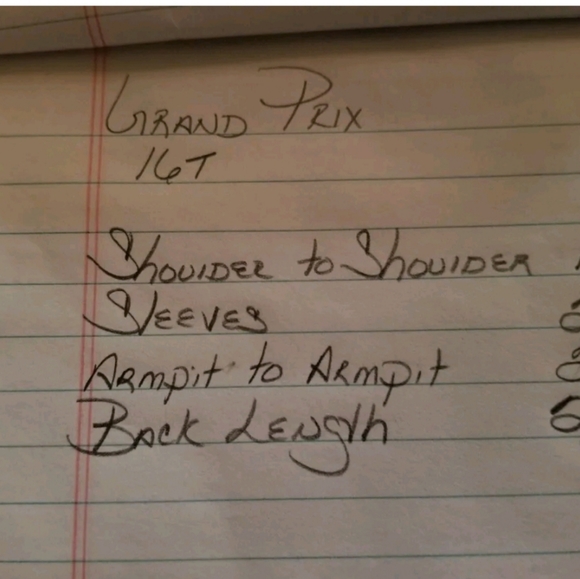 GRAND PRIX
16T
Shoulder to Shoulder
Sleeves
Armpit to Armpit
Back Length